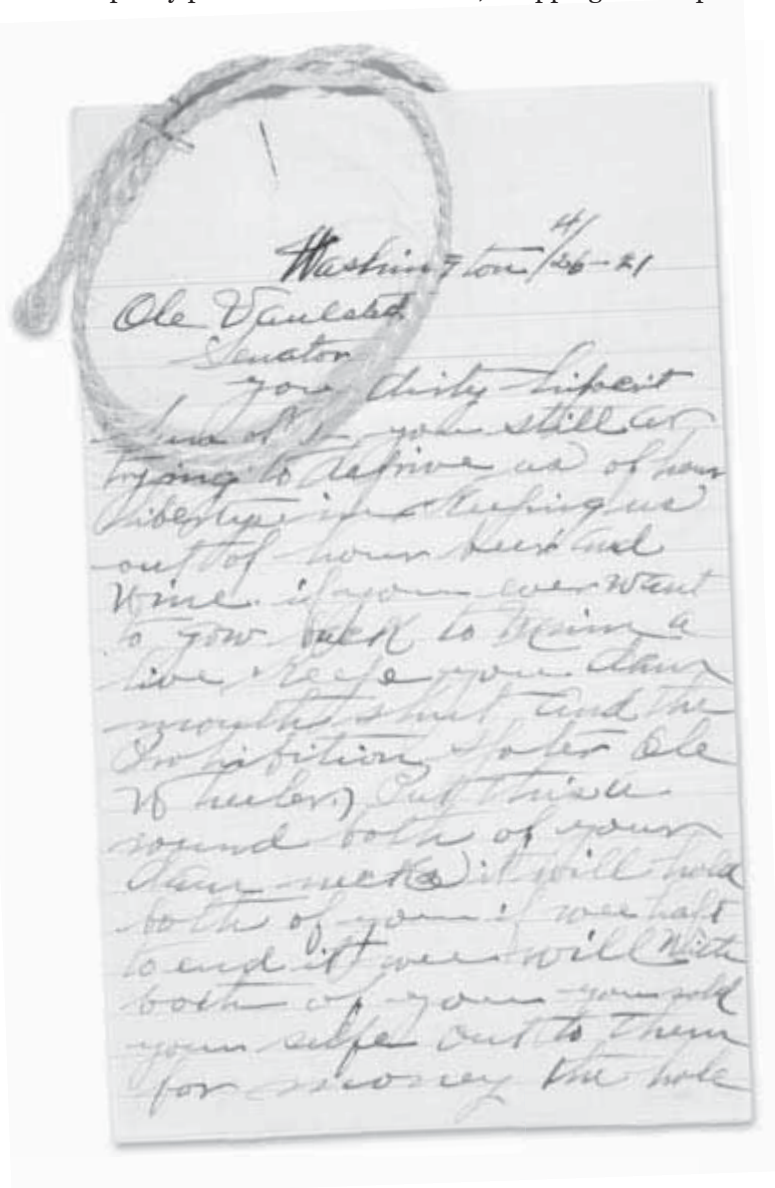 Washington 4/26-21
Ole Vaulsted
Senator
you dirty
you still ar
trying to of hour
in keeping us
out of hour beer and
Wine. if you ever want
to gow back to a
live Keepe you dam
mouth shut and the
Prohibition Ole
Wheeler) Put this a
round both of your
dam necks it will hold
both of you if wee haft
to end it wee will With
both of you you sold
your selfe out to them
for money the hole